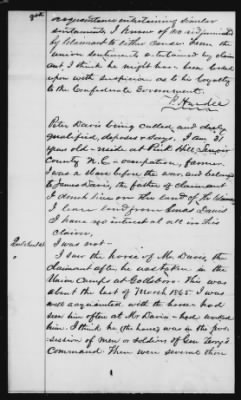 9th
acquaintance entertaining similar
sentiments. I know of no
by claimant to either cause. From the
union sentiments entertained by claim
ant I think he might have been looked
upon with suspicion as to his loyalty
to the Confederate Government.
P. Hardee
Peter Davis being called and duly
qualified, deposes & says, I am 31
years old – reside at Pink Hill, Lenoir
County N.C – occupation, farmer.
I was a slave before the war, and belonged
to James Davis, the father of claimant
I do not live on the land of the claimant
I lease land from Davis
I have no interest at all in his
claim,
I was not –
I saw the horse of Mr Davis, the
claimant after he was taken in the
Union Camps at Goldsboro. This was
about the last of March 1865. I was
well acquainted with the horse – had
seen him often at Mr Davis – had worked
him. I think he (the horse) was in the pos-
session of men or soldiers of Gen Terry's
Command. There were several then